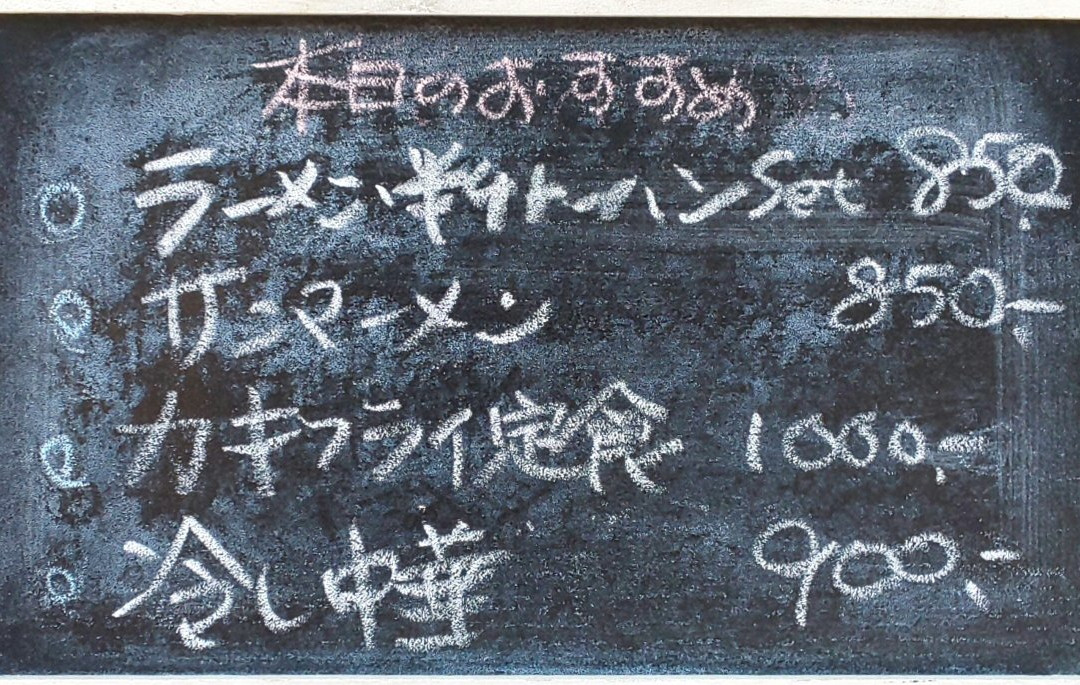 本日のおすすめ
○ ラーメン半チャーハンSet 850.-
○ サンマーメン 850.-
○ カキフライ定食 1000.-
○ 冷し中華 900.-